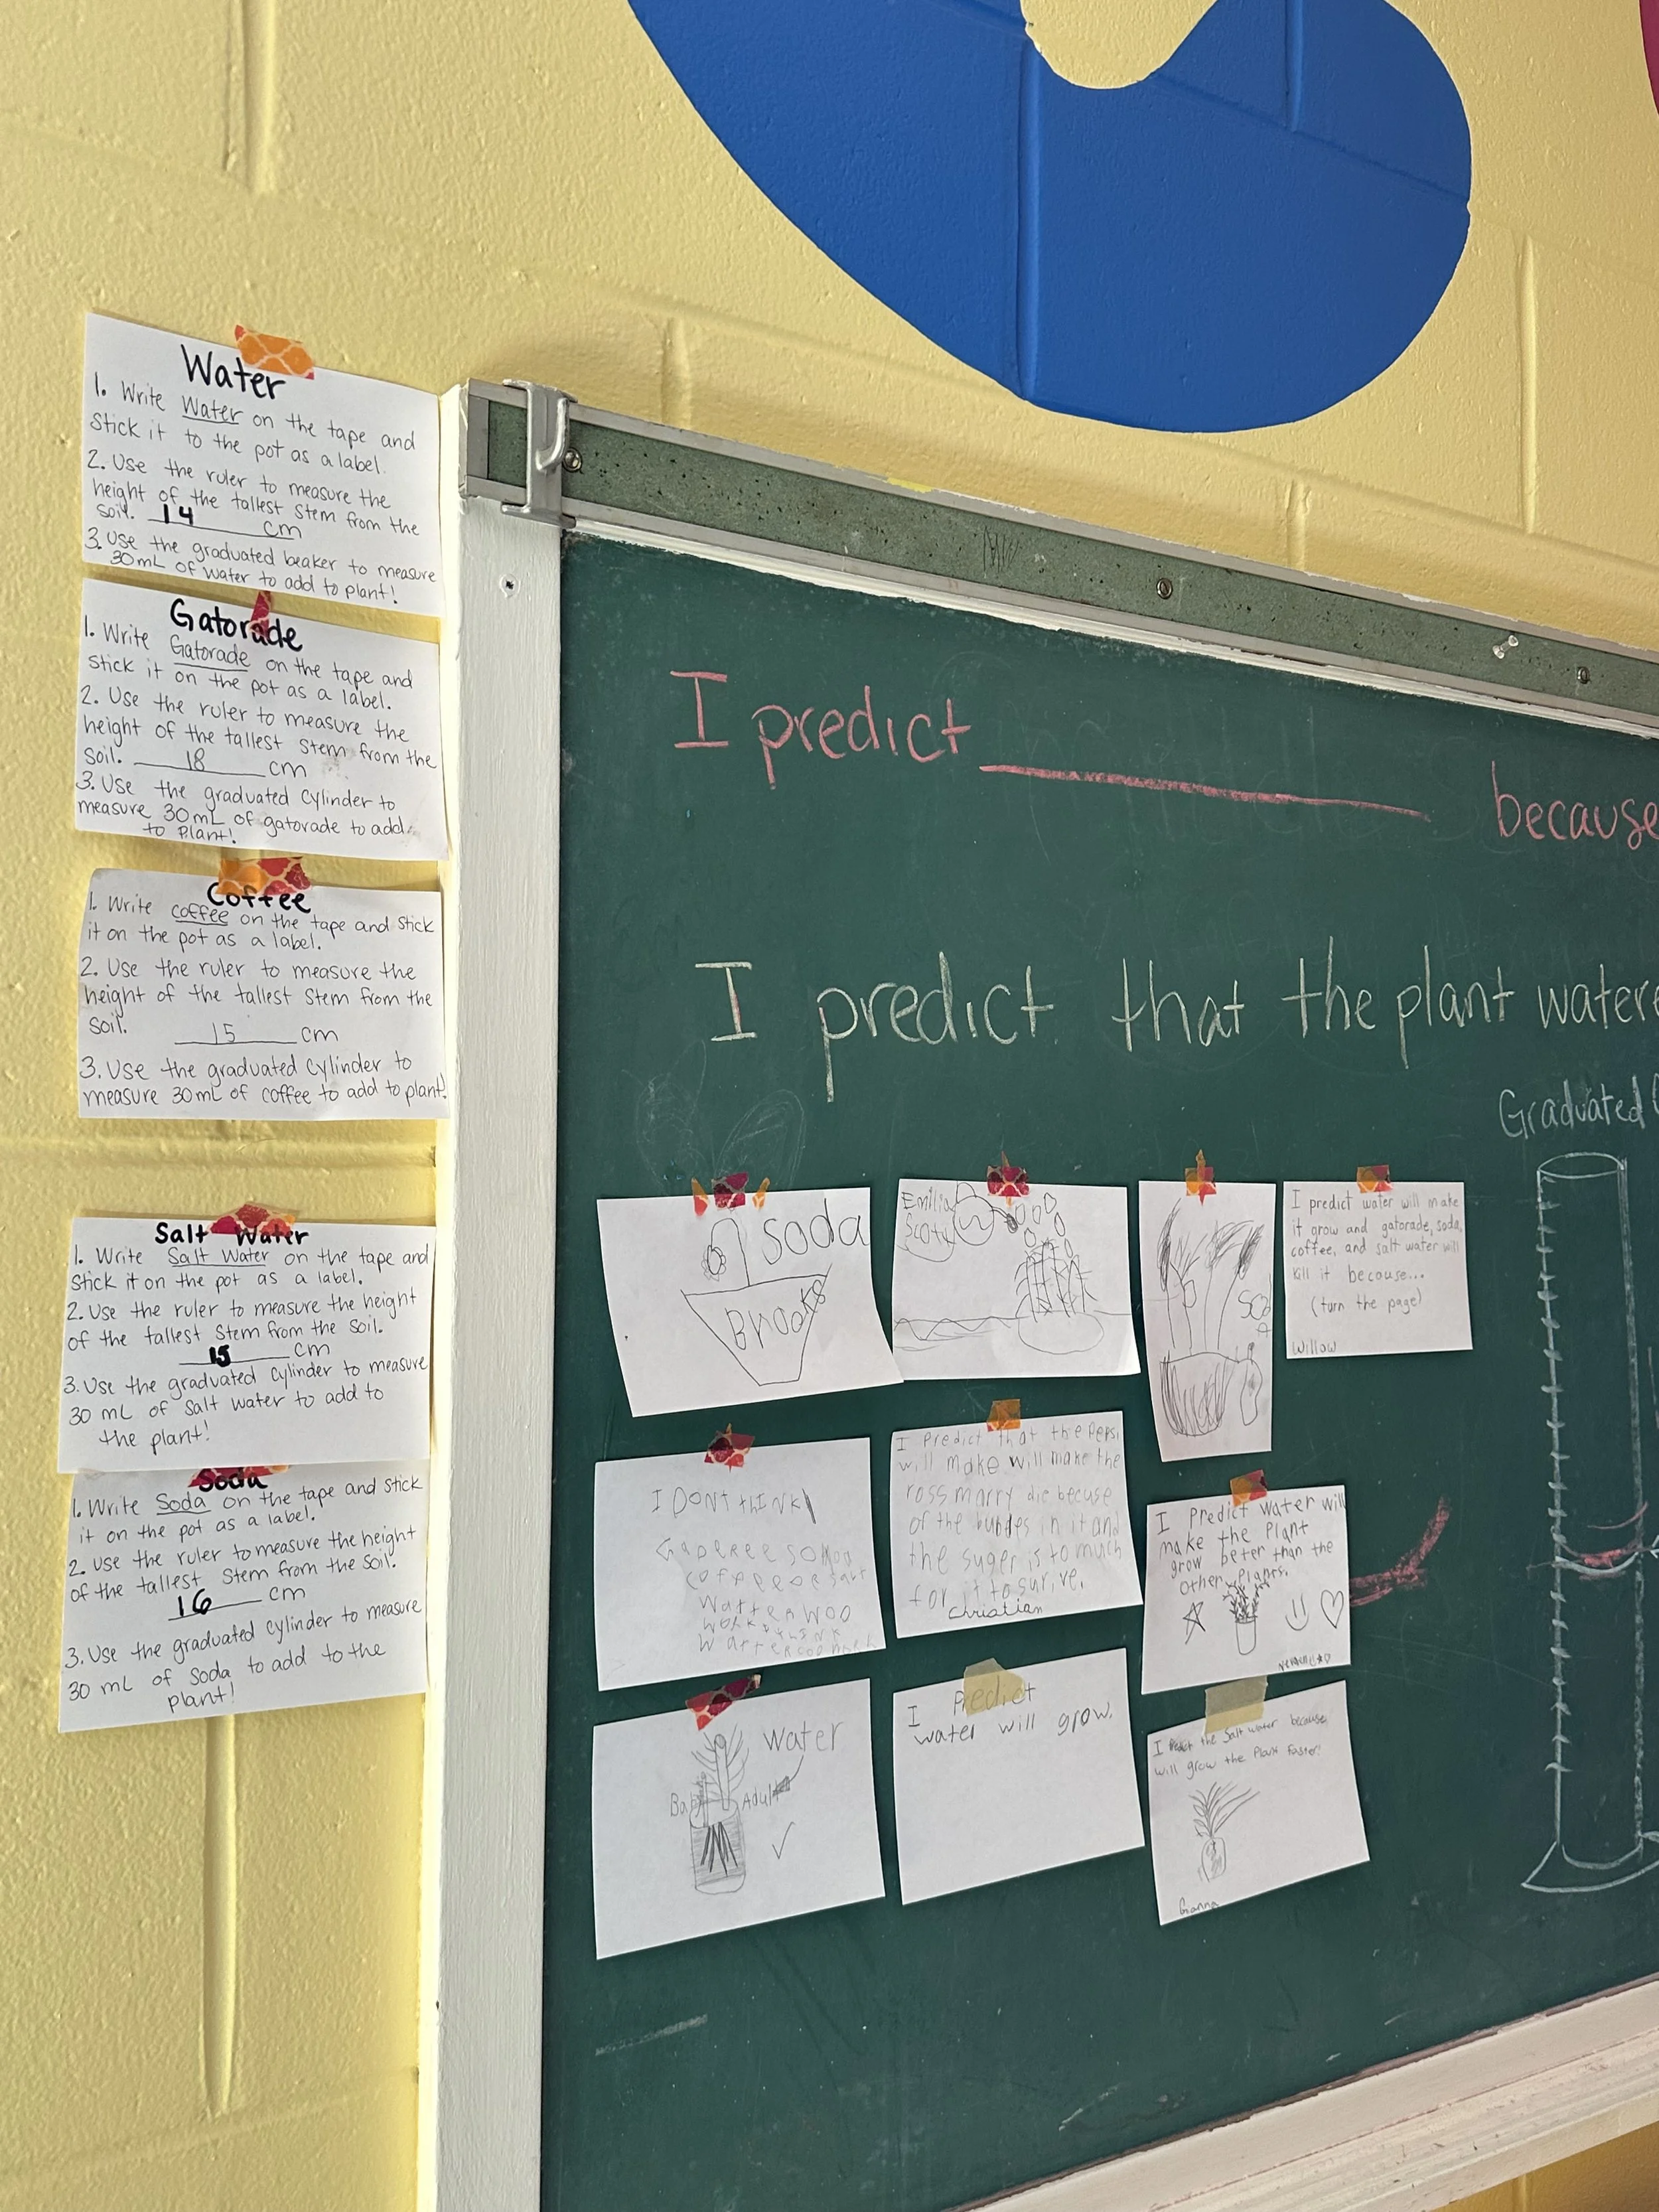 Water
1. Write Water on the tape and
stick it to the pot as a label.
2. Use the ruler to measure the
height of the tallest stem from the
soil. 14 cm
3. Use the graduated beaker to measure
30mL of water to add to plant!
Gatorade
1. Write Gatorade on the tape and
stick it on the pot as a label.
2. Use the ruler to measure the
height of the tallest stem from the
soil. 18 cm
3. Use the graduated cylinder to
measure 30 mL of gatorade to add
to plant!
Coffee
1. Write coffee on the tape and stick
it on the pot as a label.
2. Use the ruler to measure the
height of the tallest stem from the
soil. 15 cm
3. Use the graduated cylinder to
measure 30mL of coffee to add to plant!
Salt Water
1. Write Salt Water on the tape and
stick it on the pot as a label.
2. Use the ruler to measure the height
of the tallest stem from the soil.
15 cm
3. Use the graduated cylinder to measure
30 mL of salt water to add to
the plant!
Soda
1. Write Soda on the tape and stick
it on the pot as a label.
2. Use the ruler to measure the height
of the tallest stem from the soil.
16 cm
3. Use the graduated cylinder to measure
30 mL of soda to add to the
plant!
I predict because
I predict that the plant watere
Graduated
Soda
Brooks
Emilia
Scott
I predict water will make
it grow and gatorade, soda,
coffee, and salt water will
kill it because...
(turn the page)
Willow
I DONT thINK
I predict that the Pepsi
will make will make the
ross marry die becuse
of the bubdes in it and
the suger is to much
for it to surive.
Christian
I Predict water will
make the Plant
grow beter than the
Other Plants.
Water
Baby Adult
I Predict
water will grow.
I the Salt water because
will grow the Plant faster!